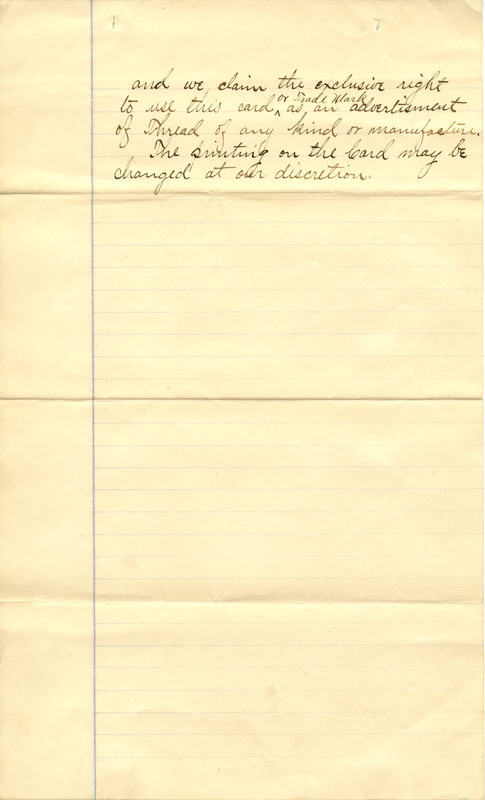 and we, claim the exclusive right
to use this card, ^ or Trade Mark as an advertisment
of Thread of any kind or manufacture.
The printing on the Card may be
changed at our discretion.